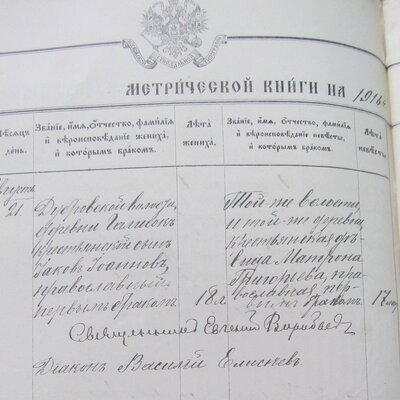 МЕТРИ́ЧЕСКОЙ КНИ́ГИ НА 1914
МѢСЯЦЪ
ДЕНЬ.
ЗВА́НІЕ, И́МЯ, О́ТЧЕСТВО, ФАМИ́ЛІЯ
И́ ВѢРОИСПОВѢ́ДАНІЕ ЖЕНИХА̀,
И́ КОТОРЫМЪ БРА́КОМЪ.
ЛѢ́ТА
ЖЕНИХА̀.
ЗВА́НІЕ, И́МЯ, О́ТЧЕСТВО, ФАМИ́ЛІЯ
И́ ВѢРОИСПОВѢ́ДАНІЕ НЕВѢ́СТЫ,
И́ КОТОРЫМЪ БРА́КОМЪ.
ЛѢ́ТА
НЕВѢ́СТЫ
Августъ
21.
Дубровской волости,
деревни
крестьянскій сынъ
Іаковъ Іоанновъ,
православный
первымъ бракомъ
18 л.
Той-же волости
и той-же деревни
крестьянская дѣ-
вица Матрона
Григорьева, пра-
вославная, пер-
вымъ бракомъ.
17
Священникъ Евгеній Воробьевъ
Діаконъ Василій Елисѣевъ.